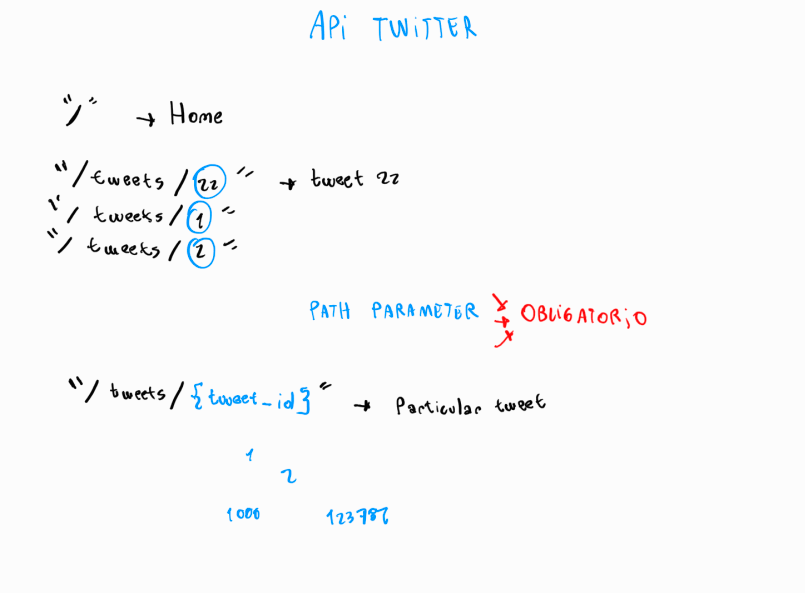 APi TWiTTER
"/" → Home
"/tweets/22" → tweet 22
"/tweeks/1"
"/tweeks/2"
PATH PARAMETER → OBLiGATORiO
"/tweets/{tweet_id}" → Particular tweet
1
2
1000 123786